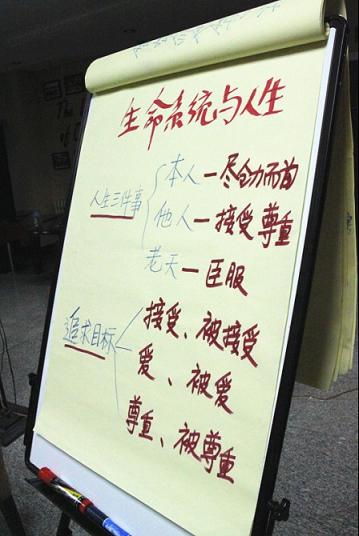 生命系统与人生
人生三件事
本人—尽全力而为
他人—接受尊重
老天—臣服
追求目标
接受、被接受
爱、被爱
尊重、被尊重